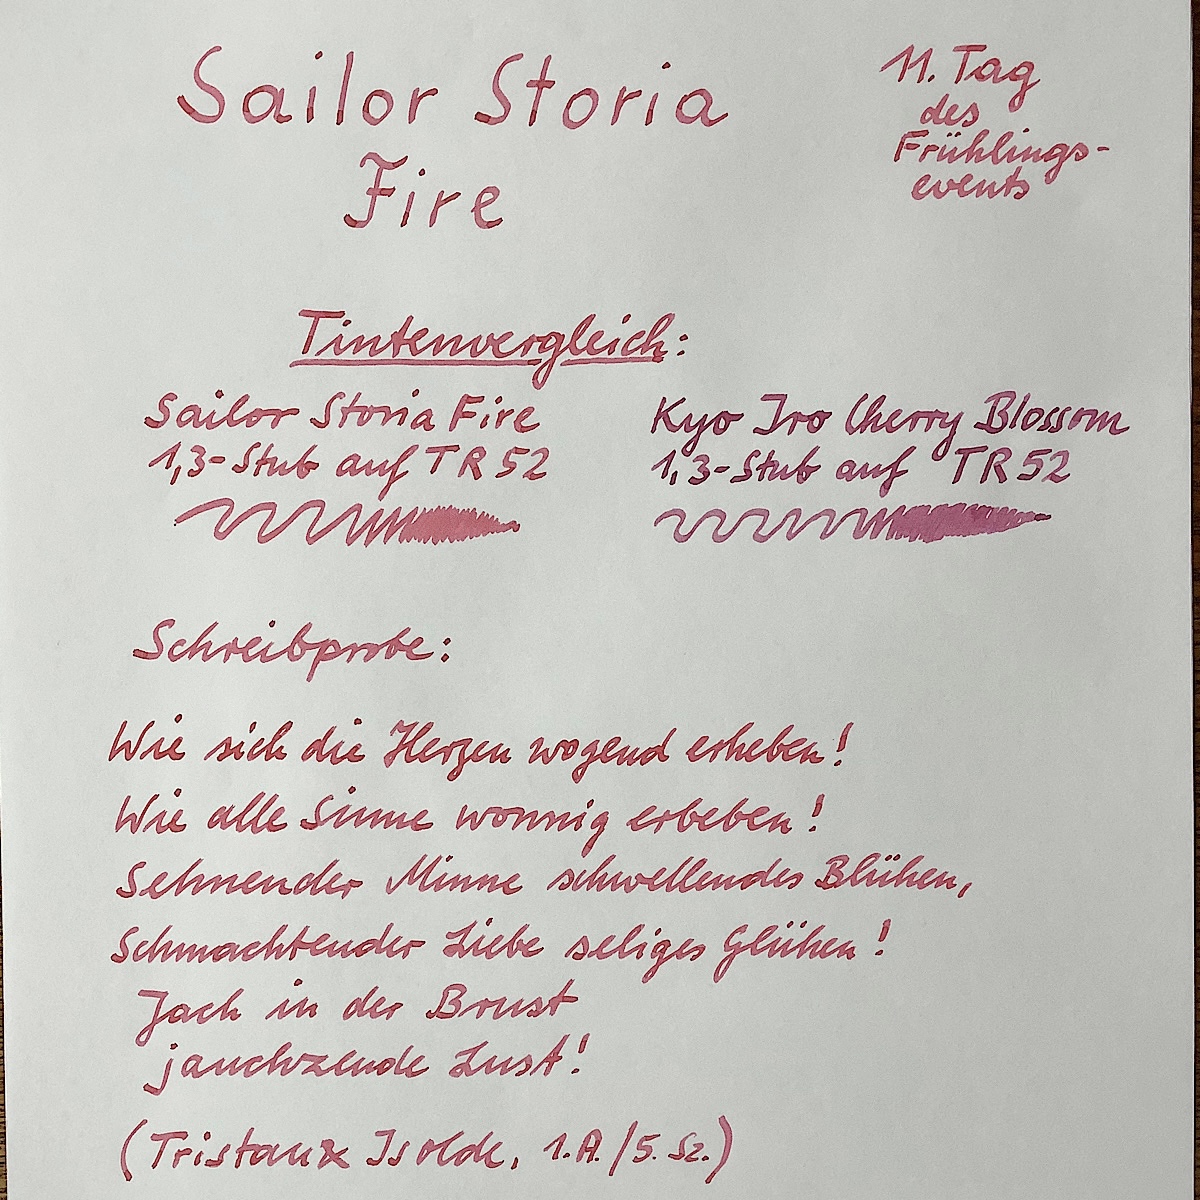 Sailor Storia
Fire
11. Tag
des
Frühlings-
events
Tintenvergleich:
Sailor Storia Fire
1,3-Stub auf TR 52
Kyo Iro Cherry Blossom
1,3-Stub auf TR 52
Schreibprobe:
Wie sich die Herzen wogend erheben!
Wie alle Sinne wonnig erbeben!
Sehnender Minne schwellendes Blühen,
Schmachtender Liebe seliges Glühen!
Jach in der Brust
jauchzende Lust!
(Tristan & Isolde, 1.A./5. Sz.)